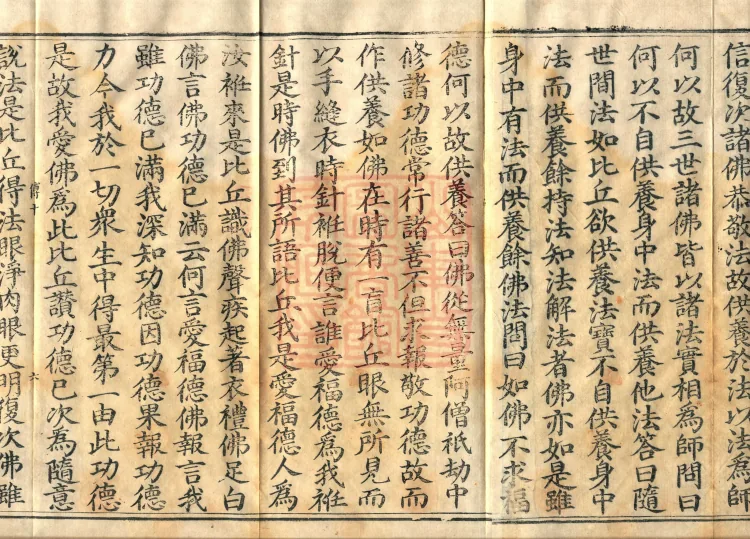 信復次諸佛恭敬法故供養於法以法為師
何以故三世諸佛皆以諸法實相為師問曰
何以不自供養身中法而供養他法答曰隨
世間法如比丘欲供養法寶不自供養身中
法而供養餘持法知法解法者佛亦如是雖
身中有法而供養餘佛法問曰如佛不求福
德何以故供養答曰佛從無量阿僧祇劫中
修諸功德常行諸善不但求報敬功德故而
作供養如佛在時有一盲比丘眼無所見而
以手縫衣時針袵脫便言誰愛福德為我袵
針是時佛到其所語比丘我是愛福德人為
汝袵來是比丘識佛聲疾起著衣禮佛足白
佛言佛功德已滿云何言愛福德佛報言我
雖功德已滿我深知功德因功德果報功德
力今我於一切衆生中得最第一由此功德
是故我愛佛為此比丘讚功德已次為隨意
六
說法是比丘得法眼淨肉眼更明復次佛雖